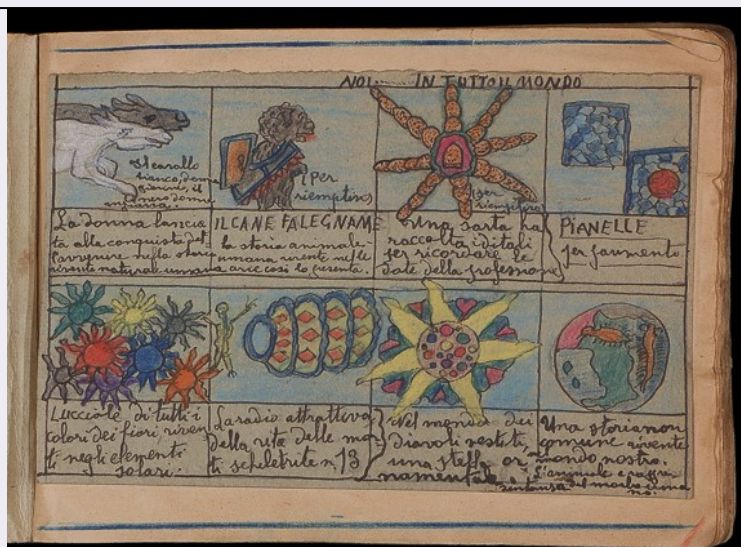 NOI...... IN TUTTO IL MONDO
Il cavallo
bianco, donna
giovine, il
nero donna
anziana.
(Per
riempitivo
(per
riempitivo)
La donna lancia
ta alla conquista del
l'avvenire nella storia
vivente naturale umana
IL CANE FALEGNAME
la storia animale-
umana vivente nelle
arie così lo presenta.
Una sarta ha
raccolta i ditali
per ricordare le
date della professione
PIANELLE
per pavimento
Lucciole di tutti i
colori dei fiori, viven
ti negli elementi
solari.
La radio attrattiva
della vita delle mor
ti scheletrite n. 13
Nel mondo dei
diavoli vestiti,
una stella or
namentale
Una storia non
comune vivente
mondo nostro.
L'animale e
del morbo uma
no.